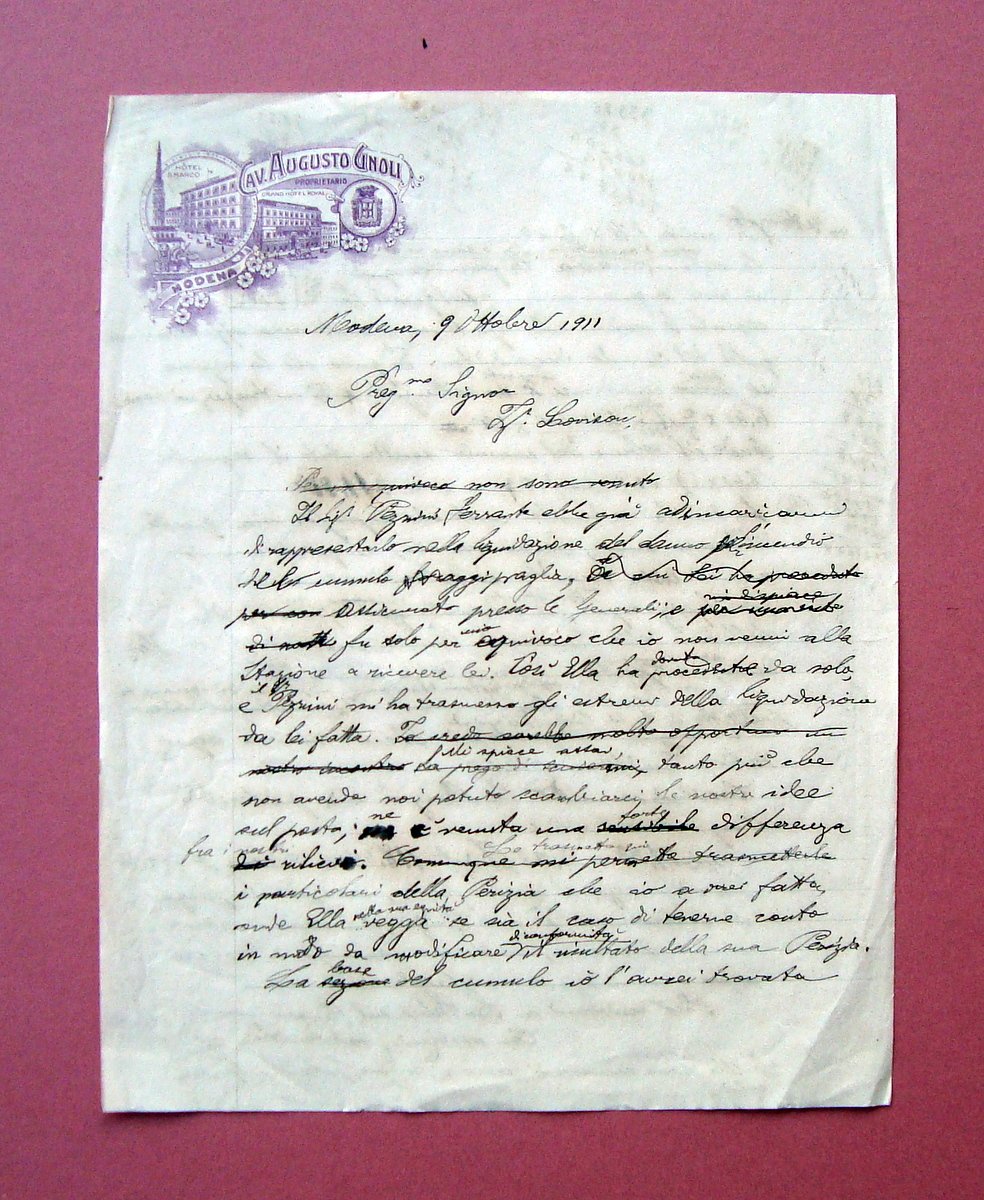 HÔTEL S. MARCO
CAV. AUGUSTO GNOLI
PROPRIETARIO
GRAND HÔTEL ROYAL
MODENA
Modena, 9 Ottobre 1911
Preg.mo Signor
Lovison,
Per equivoco non sono venuto
Il Sig. Pezzini Ferrante ebbe già ad incaricarmi
di rappresentarlo nella liquidazione del danno d'incendio
dello cumulo foraggi paglia,
per con assicurato presso le Generali, e mi dispiace
fu solo per uno equivoco che io non venni alla
Stazione a ricevere lei. Così Ella ha dovuto procedere da solo,
e il Sig. Pezzini mi ha trasmesso gli estremi della liquidazione
da lei fatta. Io credo sarebbe molto opportuno un
nostro incontro Mi spiace assai, La prego di scusarmi, tanto più che
non avendo noi potuto scambiarci le nostre idee
sul posto, ne è venuta una sensibile forte differenza
fra i nostri di rilievi. Comunque mi permetto trasmetterle Le trasmetto qui
i particolari della Perizia che io avrei fatta,
onde Ella nella sua equità vegga se sia il caso di tenerne conto
in modo da modificare di conformità il risultato della sua Perizia.
La sezione base del cumulo io l'avrei trovata